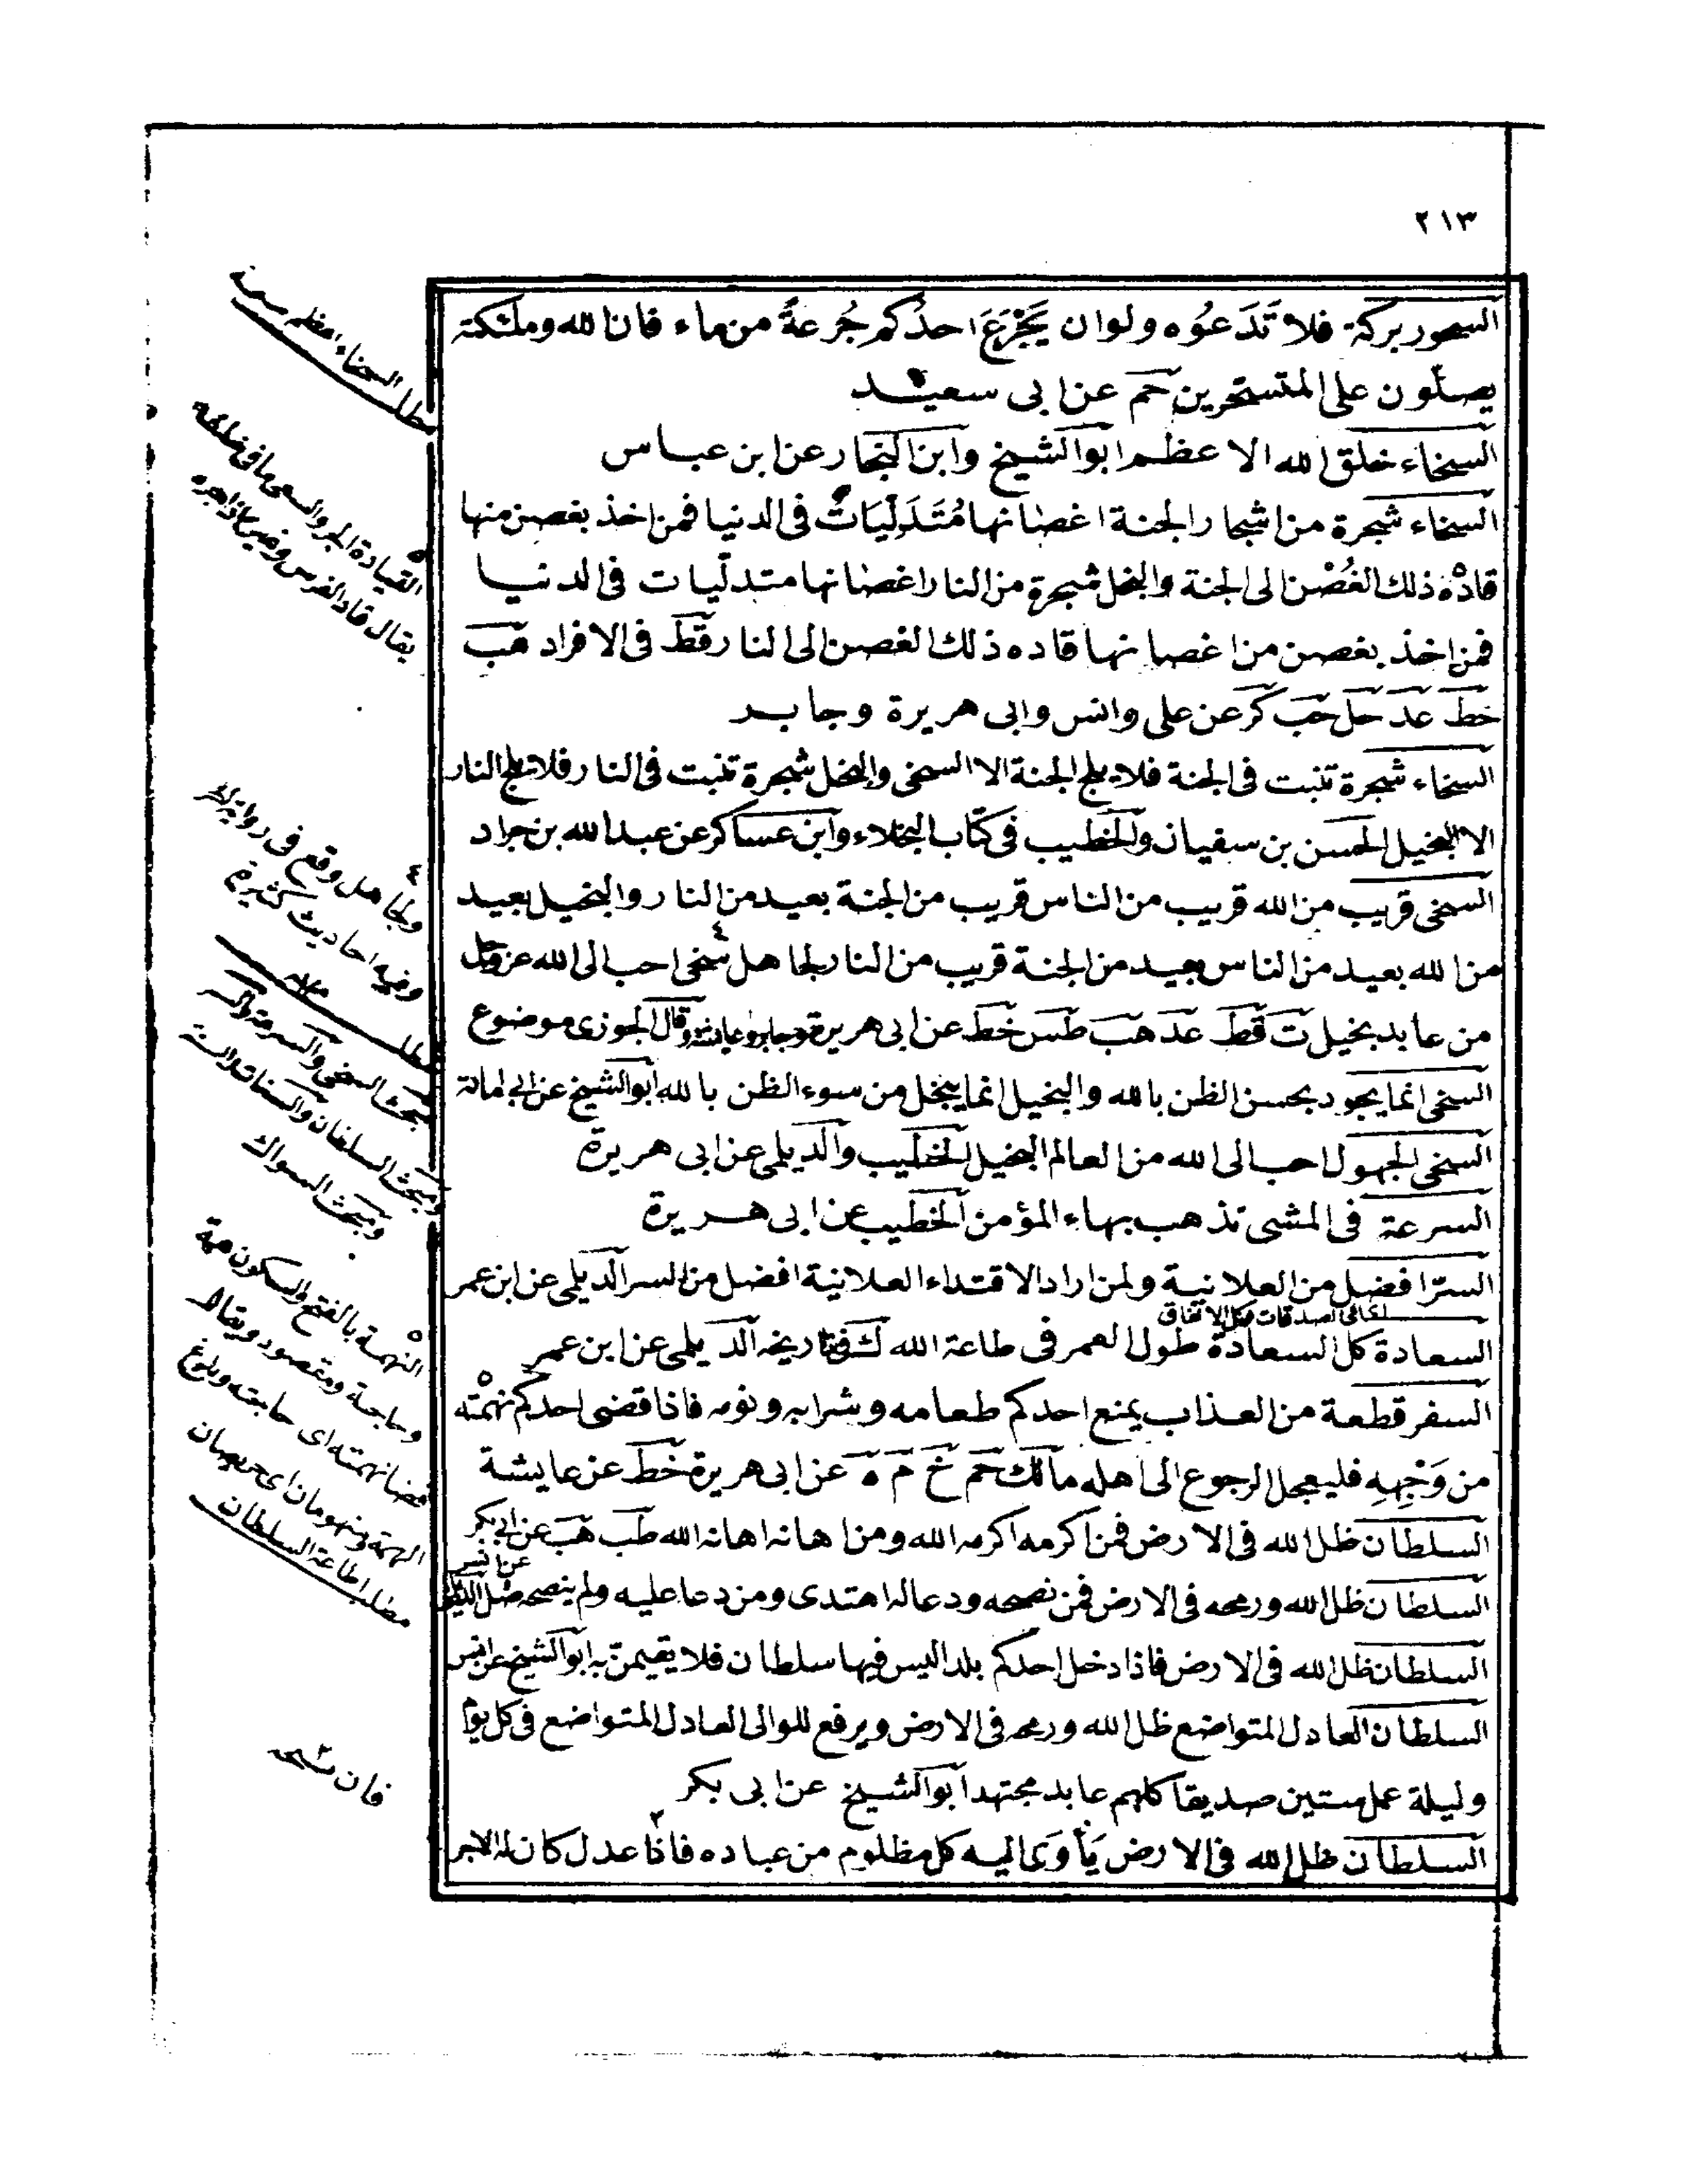 ٢١٣
السحور بركة فلا تَدَعُوه ولو ان يَجْرَعَ احدُكم جُرعةً من ماء فان الله وملئكته
يصلّون على المتسحرين حم عن ابى سعيد
السخاء خلق الله الاعظم ابو الشيخ وابن النجار عن ابن عباس
السخاء شجرة من اشجار الجنة اغصانها مُتَدَلِّيَاتٌ فى الدنيا فمن اخذ بغصن منها
قاده ذلك الغُصْن الى الجنة والبخل شجرة من النار اغصانها متدلّيات فى الدنيا
فمن اخذ بغصن من اغصانها قاده ذلك الغصن الى النار قط فى الافراد هب
خط عد حل حب كر عن على وانس وابى هريرة وجابر
السخاء شجرة تنبت فى الجنة فلا يلج الجنة الا السخى والبخل شجرة تنبت فى النار فلا يلج النار
الا البخيل الحسن بن سفيان والخطيب فى كتاب البخلاء وابن عساكر عن عبد الله بن جراد
السخى قريب من الله قريب من الناس قريب من الجنة بعيد من النار والبخيل بعيد
من الله بعيد من الناس بعيد من الجنة قريب من النار لجاهل سخى احب الى الله عز وجل
من عابد بخيل ت قط عد هب طس خط عن ابى هريرة وجابر وعايشة وقال الجوزى موضوع
السخى انما يجود بحسن الظن بالله والبخيل انما يبخل من سوء الظن بالله ابو الشيخ عن ابى امامة
السخى الجهول احب الى الله من العالم البخيل الخطيب والديلمى عن ابى هريرة
السرعة فى المشى تذهب بهاء المؤمن الخطيب عن ابى هريرة
السرّ افضل من العلانية ولمن اراد الاقتداء العلانية افضل من السر الديلمى عن ابن عمر
السعادة كل السعادة طول العمر فى طاعة الله ك فى تاريخه الديلمى عن ابن عمر
السفر قطعة من العذاب يمنع احدكم طعامه وشرابه ونومه فاذا قضى احدكم نهمته
من وَجْهِهِ فليعجل الرجوع الى اهله مالك حم خ م ه عن ابى هريرة خط عن عايشة
السلطان ظل الله فى الارض فمن اكرمه اكرمه الله ومن اهانه اهانه الله طب هب عن ابى بكر
السلطان ظل الله ورمحه فى الارض فمن نصحه ودعا له اهتدى ومن دعا عليه ولم ينصحه ضل الديلمى
عن انس
السلطان ظل الله فى الارض فاذا دخل احدكم بلدا ليس فيها سلطان فلا يقيمنّ به ابو الشيخ عن انس
السلطان العادل المتواضع ظل الله ورمحه فى الارض ويرفع للوالى العادل المتواضع فى كل يوم
وليلة عمل ستين صديقا كلهم عابد مجتهد ابو الشيخ عن ابى بكر
السلطان ظل الله فى الارض يَأوَى اليه كل مظلوم من عباده فاذا عدل كان له الاجر
القيادة الجر والسعى ما فى خلفه
يقال قاد الفرس
ولجاهل وقع فى رواية
وفيه احاديث كثيرة
مبحث السخى والسرعة والسر
ومبحث السلطان
ومبحث السواك
النهمة بالفتح والسكون همة
وحاجة ومقصود ويقال
قضا نهمته اى حاجته وبلوغ
مطلب اطاعة السلطان